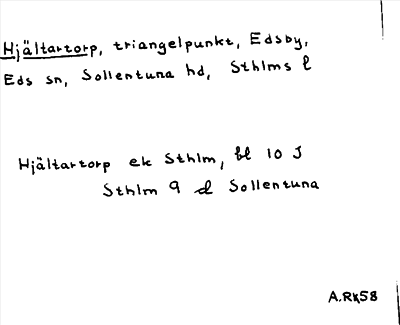 Hjältartorp, triangelpunkt, Edsby,
Eds sn, Sollentuna hd, Sthlms l
Hjältartorp ek Sthlm, bl 10 J
Sthlm 9 d Sollentuna
A.Rk58